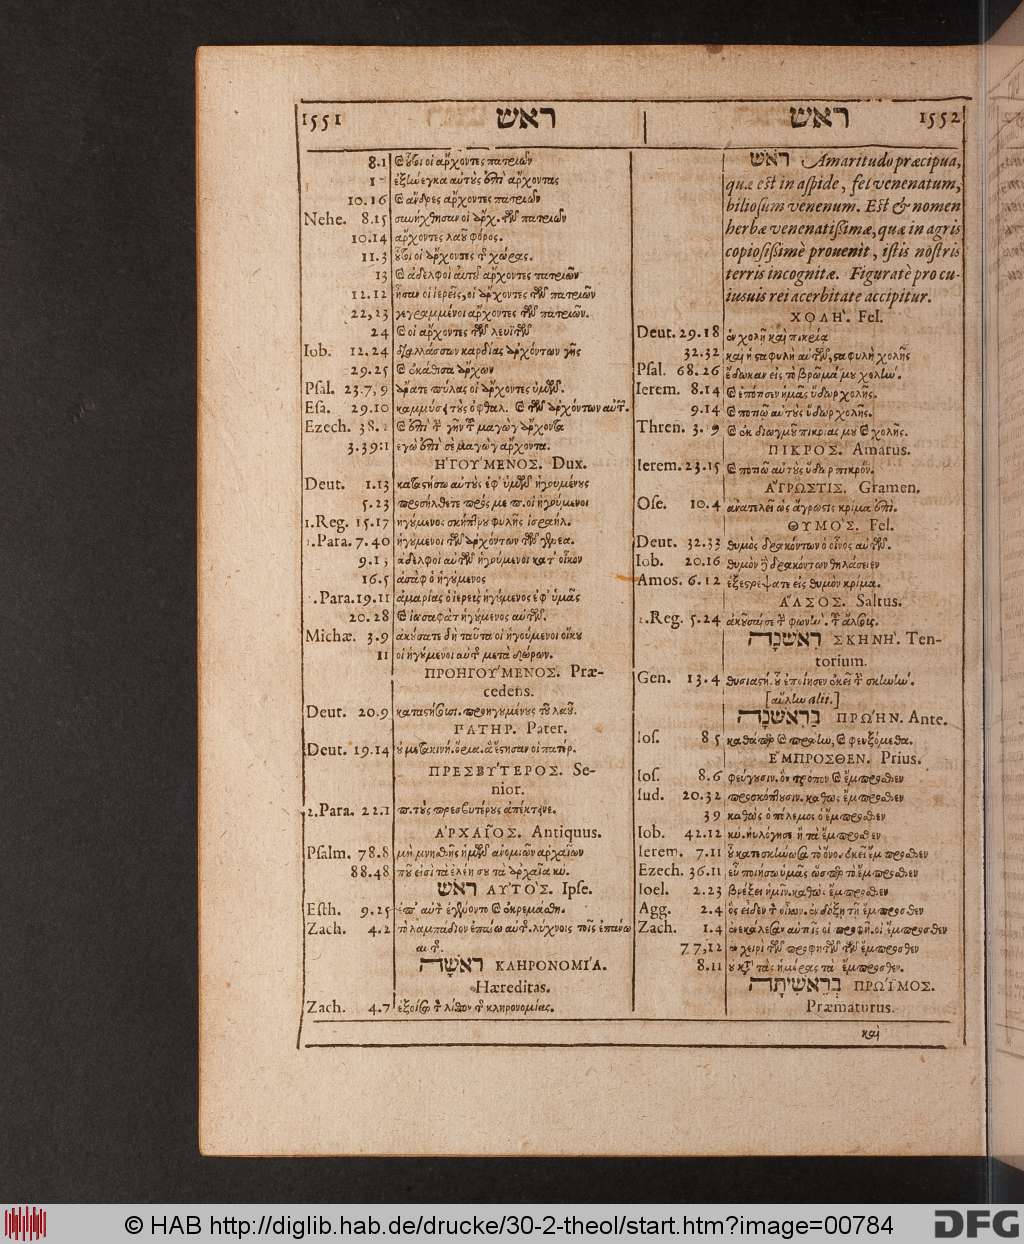 1551 ראש ראש 1552
8.1 οὗτοι οἱ ἄρχοντες πατριῶν
ἄρχοντας
10.16 ἄνδρες ἄρχοντες πατριῶν
Nehe. 8.15 συνήχθησαν οἱ ἄρχ. τῶν πατριῶν
10.14 ἄρχοντες λαοῦ φόρος.
11.3 οὗτοι οἱ ἄρχοντες τ χώρας.
13 ἀδελφοὶ αὐτοῦ ἄρχοντες πατριῶν
12.12 ἦσαν οἱ ἱερεῖς, οἱ ἄρχοντες τῶν πατριῶν
22,23 γεγραμμένοι ἄρχοντες τῶν πατριῶν.
24 οἱ ἄρχοντες τῶν λευϊτῶν
Iob. 12.24 διαλλάσσων καρδίας ἀρχόντων γῆς
29.25 ἐκάθισα ἄρχων
Psal. 23.7,9 ἄρατε πύλας οἱ ἄρχοντες ὑμῶν.
Esa. 29.10 τῶν ἀρχόντων αὐτ.
Ezech. 38. γῆν τ μαγὼγ ἄρχοντα
3.39:1 ἐγὼ ἐπὶ σὲ μαγὼγ ἄρχοντα.
ἩΓΟΎΜΕΝΟΣ. Dux.
Deut. 1.13 καταστήσω αὐτοὺς ἐφ' ὑμῶν ἡγουμένους
5.23 προσήλθετε πρός με π. οἱ ἡγούμενοι
1.Reg. 15.17 ἡγούμενος σκήπτρου φυλῆς ἰσραήλ.
.Para. 7.40 ἡγούμενοι τῶν ἀρχόντων τῶν
9.13 ἀδελφοὶ αὐτῶν ἡγούμενοι κατ' οἶκον
16.5 ἀσὰφ ὁ ἡγούμενος
.Para. 19.11 ἀμαρίας ὁ ἱερεὺς ἡγούμενος ἐφ' ὑμᾶς
20.28 ἰωσαφὰτ ἡγούμενος αὐτῶν.
Michæ. 3.9 ἀκούσατε δὴ ταῦτα οἱ ἡγούμενοι οἴκου
11 οἱ ἡγούμενοι αὐτ μετὰ δώρων.
ΠΡΟΗΓΟΎΜΕΝΟΣ. Præ-
cedens.
Deut. 20.9 προηγουμένους τοῦ λαοῦ.
ΠΑΤΗΡ. Pater.
Deut. 19.14 οὐ μετακινή. ὅρια. ἃ ἔστησαν οἱ πατέρ.
ΠΡΕΣΒΎΤΕΡΟΣ. Se-
nior.
2.Para. 22.1 π. τοὺς πρεσβυτέρους ἀπέκτεινε.
ἈΡΧΑΙ͂ΟΣ. Antiquus.
Psalm. 78.8 μὴ μνησθῇς ἡμῶν ἀνομιῶν ἀρχαίων
88.48 ποῦ εἰσὶ τὰ ἐλέη σου τὰ ἀρχαῖα κυ.
ראש ΑΥ̓ΤῸΣ. Ipse.
Esth. 9.25 ἐπ' αὐτ ἐγένοντο ἐκρεμάσθη.
Zach. 4.2 τὸ λαμπάδιον ἐπάνω αὐτ. λύχνοις τοῖς ἐπάνω
αυτ.
ראשה ΚΛΗΡΟΝΟΜΊΑ.
Hæreditas.
Zach. 4.7 ἐξοίσω τ λίθον τ κληρονομίας.
ראש Amaritudo præcipua,
quæ est in aspide, fel venenatum,
biliosum venenum. Est & nomen
herbæ venenatißimæ, quæ in agris
copiosißimè prouenit, istis nostris
terris incognitæ. Figuratè pro cu-
iusuis rei acerbitate accipitur.
ΧΟΛῊ. Fel.
Deut. 29.18 ἐν χολῇ καὶ πικρίᾳ
32.32 καὶ ἡ σταφυλὴ αὐτῶν, σταφυλὴ χολῆς
Psal. 68.26 ἔδωκαν εἰς τὸ βρῶμά μου χολήν.
Ierem. 8.14 ἐπότισεν ἡμᾶς ὕδωρ χολῆς.
9.14 ποτιῶ αὐτοὺς ὕδωρ χολῆς.
Thren. 3. 9 πικρίας μου χολῆς.
ΠΙΚΡΟΣ. Amarus.
Ierem. 23.15 ποτιῶ αὐτοὺς ὕδωρ πικρόν.
ἌΓΡΩΣΤΙΣ. Gramen.
Ose. 10.4 ἀνατελεῖ ὡς ἄγρωστις κρίμα ἐπὶ.
ΘΥΜῸΣ. Fel.
Deut. 32.33 θυμὸς δρακόντων ὁ οἶνος αὐτῶν.
Iob. 20.16 θυμὸν δρακόντων θηλάσειεν
Amos. 6.12 ἐξεστρέψατε εἰς θυμὸν κρίμα.
ἌΛΣΟΣ. Saltus.
.Reg. 5.24 φωνὴν. τ ἄλσους.
ראשנה ΣΚΗΝῊ. Ten-
torium.
Gen. 13.4 θυσιαστή. οὗ ἐποίησεν ἐκεῖ τ σκηνήν.
[αὐλὼ alit.]
בראשנה ΠΡΩΉΝ. Ante.
Ios. 8 5 καθάπερ πρώην, φευξόμεθα.
ἜΜΠΡΟΣΘΕΝ. Prius.
Ios. 8.6 φεύγουσιν. ὃν τρόπον ἔμπροσθεν
Iud. 20.32 προσκόπτουσιν. καθὼς ἔμπροσθεν
39 καθὼς ὁ πόλεμος ὁ ἔμπροσθεν
Iob. 42.12 κυ. ηὐλόγησε. ἢ τὰ ἔμπροσθεν
Ierem. 7.11 οὗ κατεσκήνωσα τὸ ὄνο. ἐκεῖ ἔμπροσθεν
Ezech. 36.11 εὖ ποιήσω ὑμᾶς ὥσπερ τὸ ἔμπροσθεν
Ioel. 2.23 βρέξει ἡμῖν. καθὼς ἔμπροσθεν
Agg. 2.4 ὃς εἶδεν τ οἶκον. ἐν δόξῃ τῇ ἔμπροσθεν
Zach. 1.4 ἐνεκάλεσαν αὐτοῖς οἱ προφῆ. οἱ ἔμπροσθεν
7 7,12 ἐν χειρὶ τῶν προφητῶν τῶν ἔμπροσθεν
8.11 τὰς ἡμέρας τὰ ἔμπροσθεν.
בראשיתה ΠΡΩΪ́ΜΟΣ.
Præmaturus.
καὶ
© HAB http://diglib.hab.de/drucke/30-2-theol/start.htm?image=00784
DFG